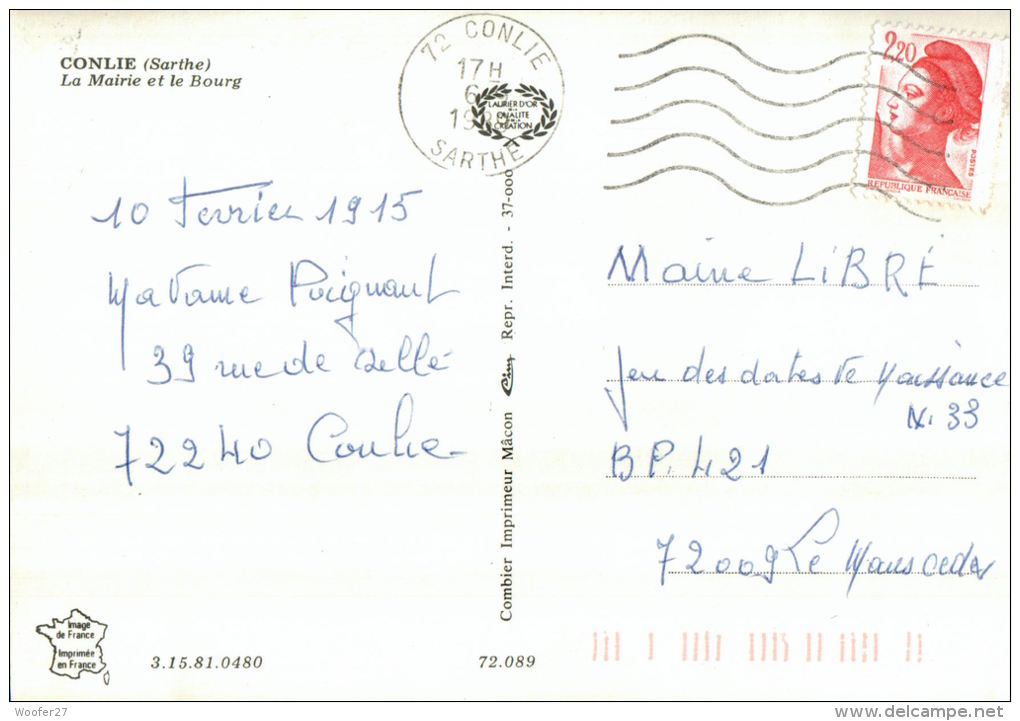 CONLIE (Sarthe)
La Mairie et le Bourg
72 CONLIE
17H
6
1989
SARTHE
LAURIER D'OR
DE LA
QUALITE
DE LA
CREATION
2,20
POSTES
REPUBLIQUE FRANÇAISE
10 Fevrier 1915
Madame Poignant
39 rue de
72240 Conlie
Combier Imprimeur Mâcon Cim Repr. Interd. - 37-000
Maine LiBRE
Jeu des dates de Naissance
N. 33
B P. 421
72009 Le Mans cedex
Image
de France
Imprimée
en France
3.15.81.0480
72.089
Woofer27
www.delcampe.net